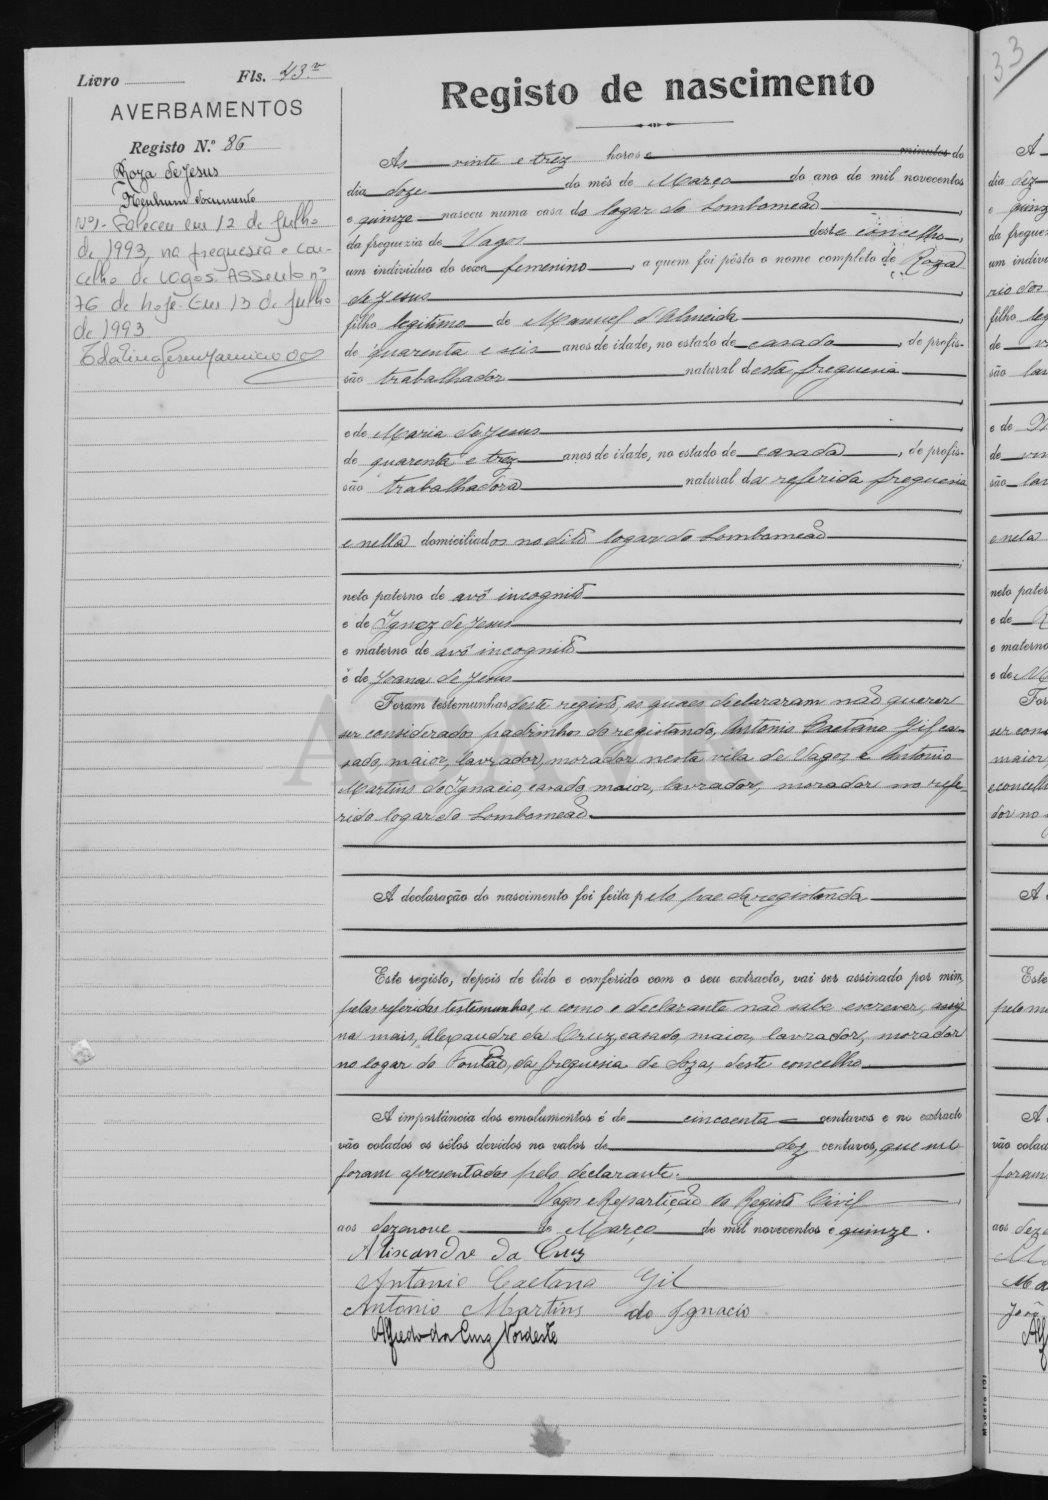 Livro Fls. 43.v
AVERBAMENTOS
Registo N.º 86
Roza de Jesus
Nenhum documento
Nº1- Faleceu em 12 de Julho
de 1993, na freguesia e con-
celho de Vagos. Assento nº
76 de hoje. Em 13 de Julho
de 1993
Registo de nascimento
As vinte e trez horas e minutos do
dia doze do mês de Março do ano de mil novecentos
e quinze nasceu numa casa do logar do Lombomeão,
da freguezia de Vagos deste concelho,
um individuo do sexo femenino, a quem foi pôsto o nome completo de Roza
de Jesus
filho legitimo de Manuel d'Almeida,
de quarenta e seis anos de idade, no estado de casado, de profis-
são trabalhador natural desta freguesia
e de Maria de Jesus
de quarenta e trez anos de idade, no estado de casada, de profis-
são trabalhadora natural da referida freguesia
e nella domiciliados no dito logar do Lombomeão
neto paterno de avô incognito
e de Ignez de Jesus
e materno de avô incognito
e de Joana de Jesus
Foram testemunhas deste registo, as quaes declararam não querer
ser considerados padrinhos do registando, Antonio Caetano Gil, ca-
sado, maior, lavrador, morador nesta vila de Vagos, e Antonio
Martins do Ignacio, casado, maior, lavrador, morador no refe-
rido logar do Lombomeão.
A declaração do nascimento foi feita pelo pae da registanda
Este registo, depois de lido e conferido com o seu extracto, vai ser assinado por mim,
pelas referidas testemunhas, e como o declarante não sabe escrever, assig
na mais, Alexandre da Cruz, casado, maior, lavrador, morador
no logar do Fontão, da freguesia de Soza, deste concelho
A importância dos emolumentos é de cincoenta centavos e no extracto
vão colados os sêlos devidos no valor de dez centavos, que me
foram apresentados pelo declarante.
Vagos e Repartição do Registo Civil
aos dezenove de Março de mil novecentos e quinze.
Alixandre da Cruz
Antonio Caetano Gil
Antonio Martins do Ignacio
Alfredo da Cruz Nordeste
ADAVR
33
Modelo 101